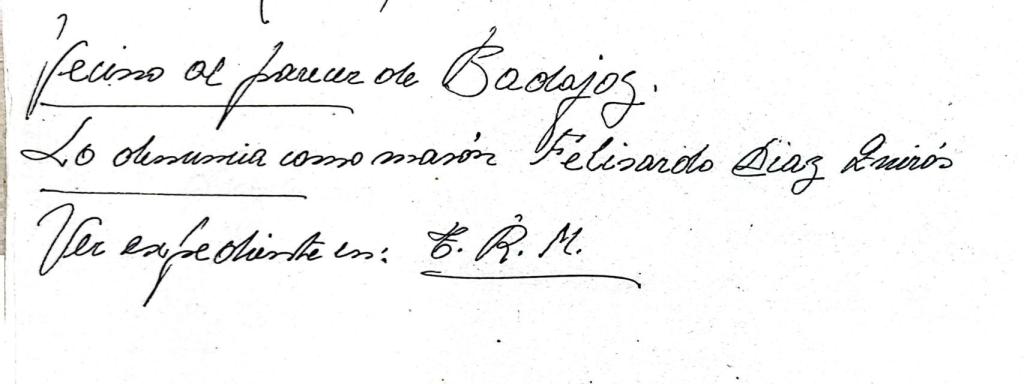 Vecino al parecer de Badajoz.
Lo denuncia como masón Felisardo Diaz Quirós
Ver expediente en: T. R. M.